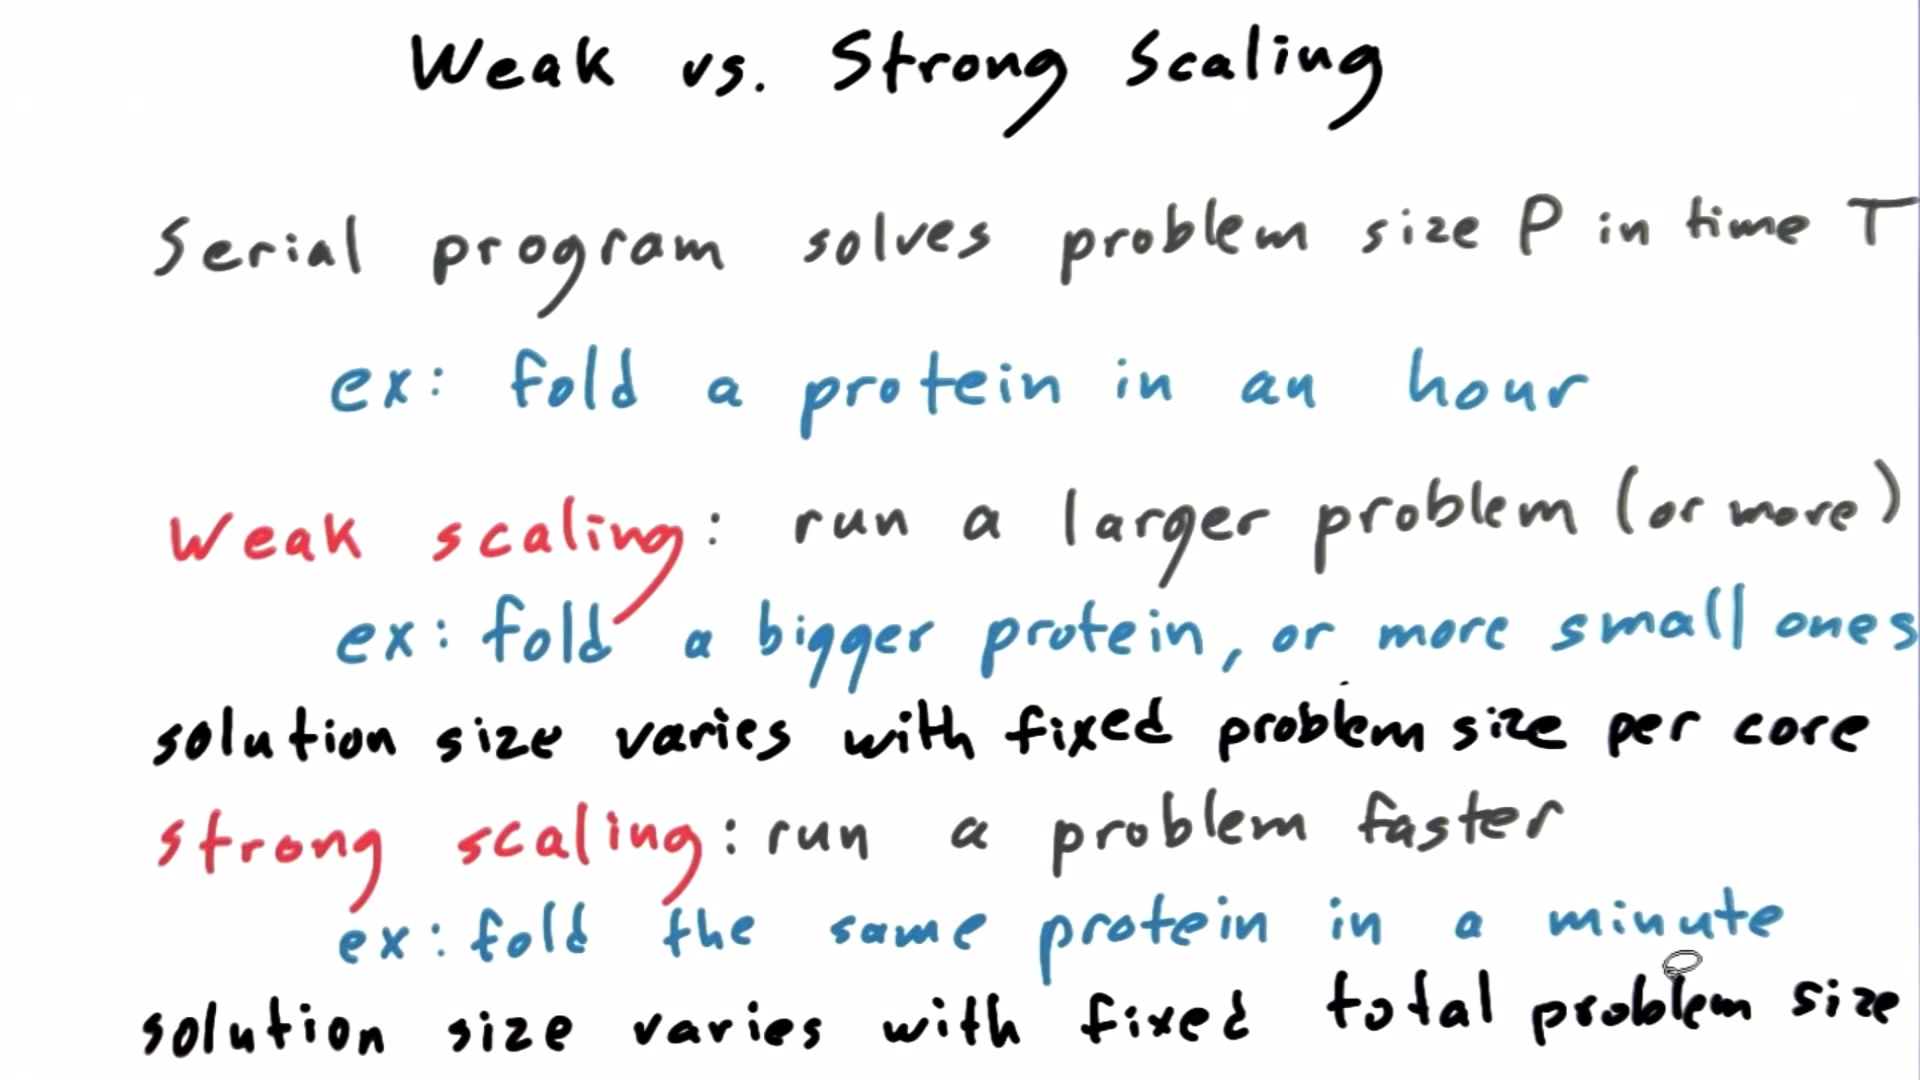 Weak vs. Strong Scaling
Serial program solves problem size P in time T
ex: fold a protein in an hour
Weak scaling: run a larger problem (or more)
ex: fold a bigger protein, or more small ones
solution size varies with fixed problem size per core
Strong scaling: run a problem faster
ex: fold the same protein in a minute
solution size varies with fixed total problem size